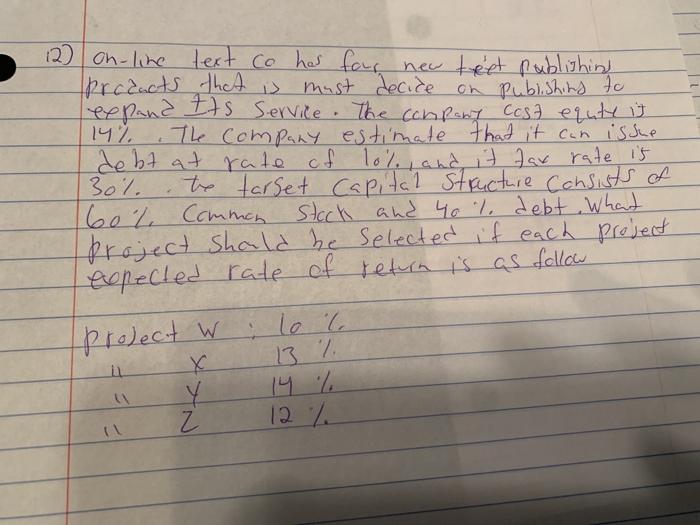 12) on-line text co has four new text publishing
products that is must decide on publishing to
expand Its Service. The company cost equity is
14%. The company estimate that it can issue
debt at rate of 10%, and it tax rate is
30%. the target capital structure consists of
60% Common Stock and 40% debt. What
project should be selected if each project
expected rate of return is as follow
project W : 10 %
" X 13 %
" Y 14 %
" Z 12 %